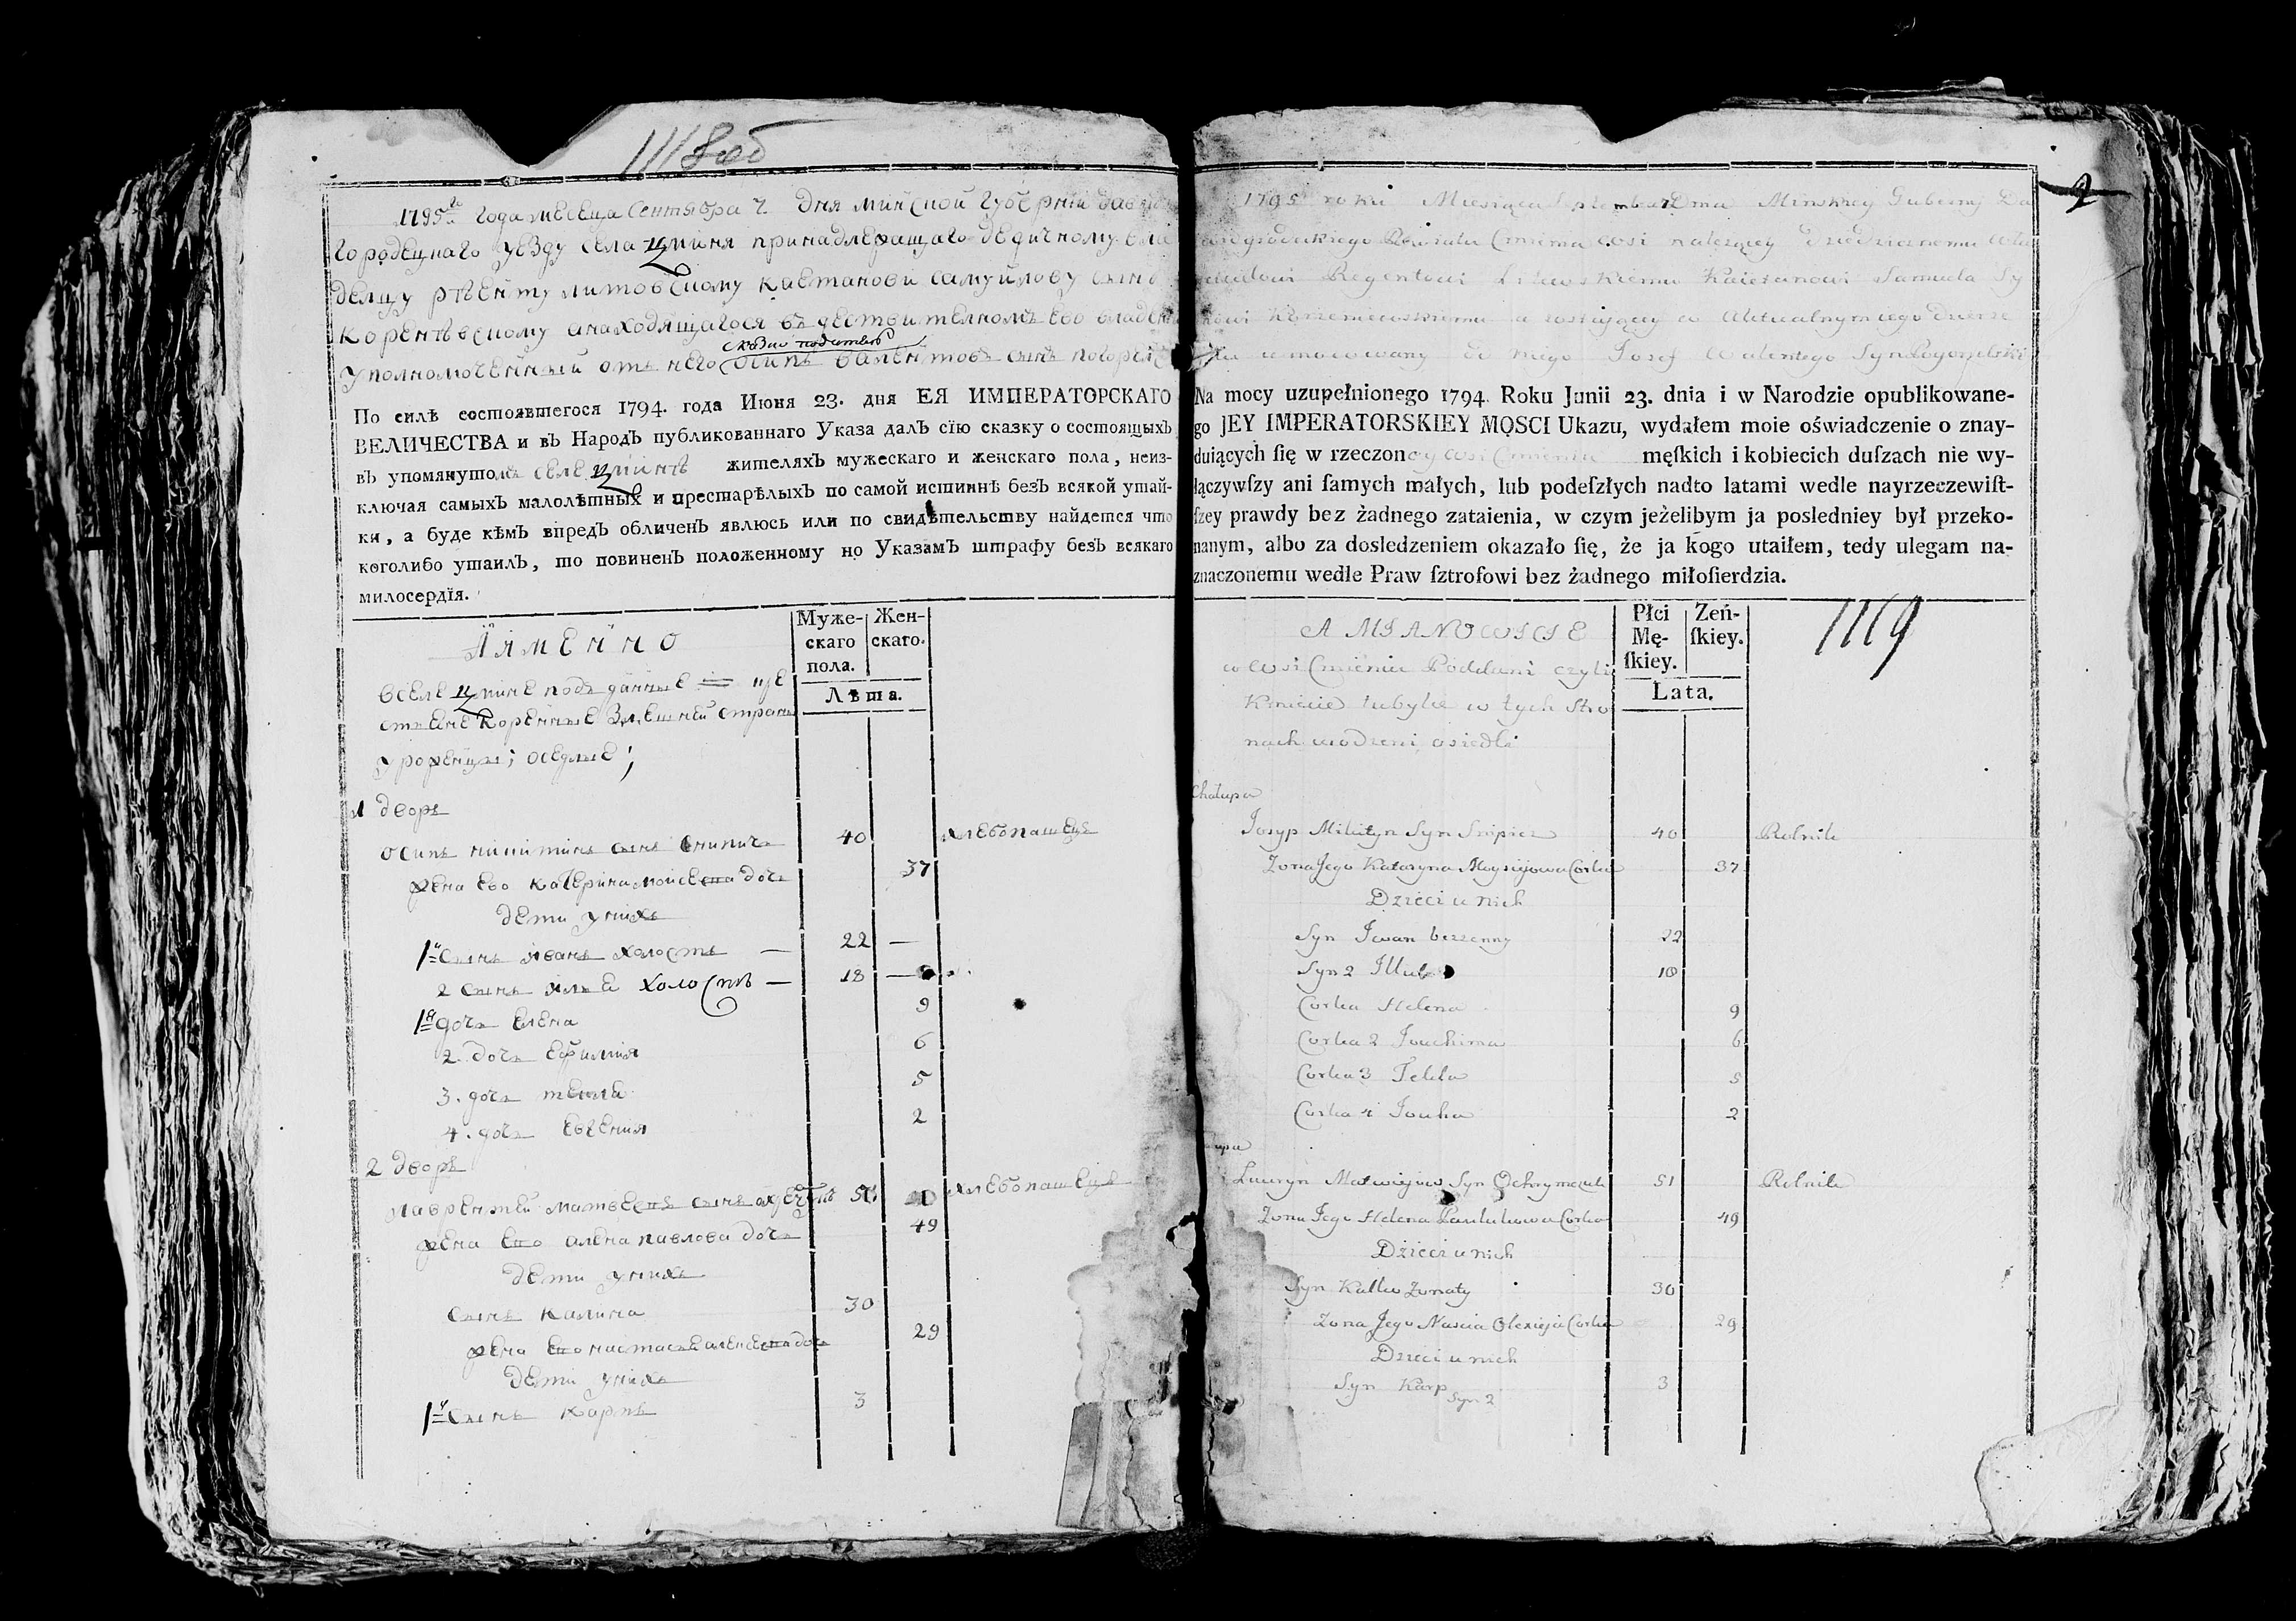 1118об
1795го года месеца Сентября 7 дня минской губернїи давыд
городецкаго уезду села Цміня принадлежащаго дедичному вла
делцу рѣенту литовскому каетанови самуйлову сыну
коренѣвскому а находящагося въ дествителномъ ево владен
сказкоподатель
уполномоченный отъ него осипъ валентовъ сынъ погорелс
По силѣ состоявшегося 1794. года Июня 23. дня ЕЯ ИМПЕРАТОРСКАГО
ВЕЛИЧЕСТВА и въ Народъ публикованнаго Указа далъ сїю сказку о состоящыхъ
въ упомянутомъ селе Цмінѣ жителяхъ мужескаго и женскаго пола, неиз-
ключая самыхъ малолѣтныхъ и престарѣлыхъ по самой истиннѣ безъ всякой утай-
ки, а буде кѣмъ впредь обличенъ явлюсь или по свидѣтельству найдется что
коголибо утаилъ, то повиненъ положенному по Указамъ штрафу безъ всякаго
милосердїя.
Муже-
скаго
пола.
Жен-
скаго.
Лѣта.
А ИМЕННО
вселе Цміне подъданные
коренные здешней страны
уроженцы; оседлые;
1 дворъ
осипъ никитинъ сынъ снипичъ 40 хлебопашецъ
жена ево катерина мойсеева дочь 37
дети у нихъ
1й сынъ иванъ холостъ — 22 —
2 сынъ илья холостъ — 18 —
1я дочь елена 9
2. дочь ефимия 6
3. дочь текла 5
4. дочь евгения 2
2 дворъ
лаврентей матвеевъ сынъ 51 хлебопашецъ
жена ево алена павлова дочь 49
дети у нихъ
сынъ калина 30
жена ево настасья алексеева дочь 29
дети у нихъ
1й сынъ карпъ 3
2
1795 roku Miesiąca Septembra 7 Dnia Minskiey Guberny Da
widgrodeckiego Powiatu Cminia wsi należącey Dziedzicznemu Wła
Regentowi Litewskiemu Kaietanowi Samuela Sy
nowi Korzeniewskiemu a zostaiącey w Aktualnym iego Dzierże
niu umocowany od niego Jozef Walentego Syn Pogorzelski
Na mocy uzupełnionego 1794. Roku Junii 23. dnia i w Narodzie opublikowane-
go JEY IMPERATORSKIEY MOSCI Ukazu, wydałem moie oświadczenie o znay-
duiących ſię w rzeczoney wsi Cmieniu męſkich i kobiecich duſzach nie wy-
łączywſzy ani ſamych małych, lub podeſzłych nadto latami wedle nayrzeczewiſt-
ſzey prawdy bez żadnego zataienia, w czym jeżelibym ja posledniey był przeko-
nanym, albo za dosledzeniem okazało ſię, że ja kogo utaiłem, tedy ulegam na-
znaczonemu wedle Praw ſztrofowi bez żadnego miłoſierdzia.
Płci
Mę-
ſkiey.
Zeń-
ſkiey.
Lata.
1119
A MIANOWICIE
w Wsi Cmieniu Poddani czyli
Kmiecie tubylce w tych Stro
nach urodzeni osiedli
Chałupa
Josyp Mikityn Syn Snipicz 40 Rolnik
Zona Jego Kataryna Moysijowa Corka 37
Dzieci u nich
Syn Iwan bezzenny 22
Syn 2 Illia 18
Corka Helena 9
Corka 2 Jouchima 6
Corka 3 Tekla 5
Corka 4 Jouha 2
Lauryn Matwiejow Syn Ochrymczuk 51 Rolnik
Zona Jego Helena Pawlukowa Corka 49
Dzieci u nich
Syn Kalko Zonaty 30
Zona Jego Nascia Olexieja Corka 29
Dzieci u nich
Syn Karp 3
Syn 2